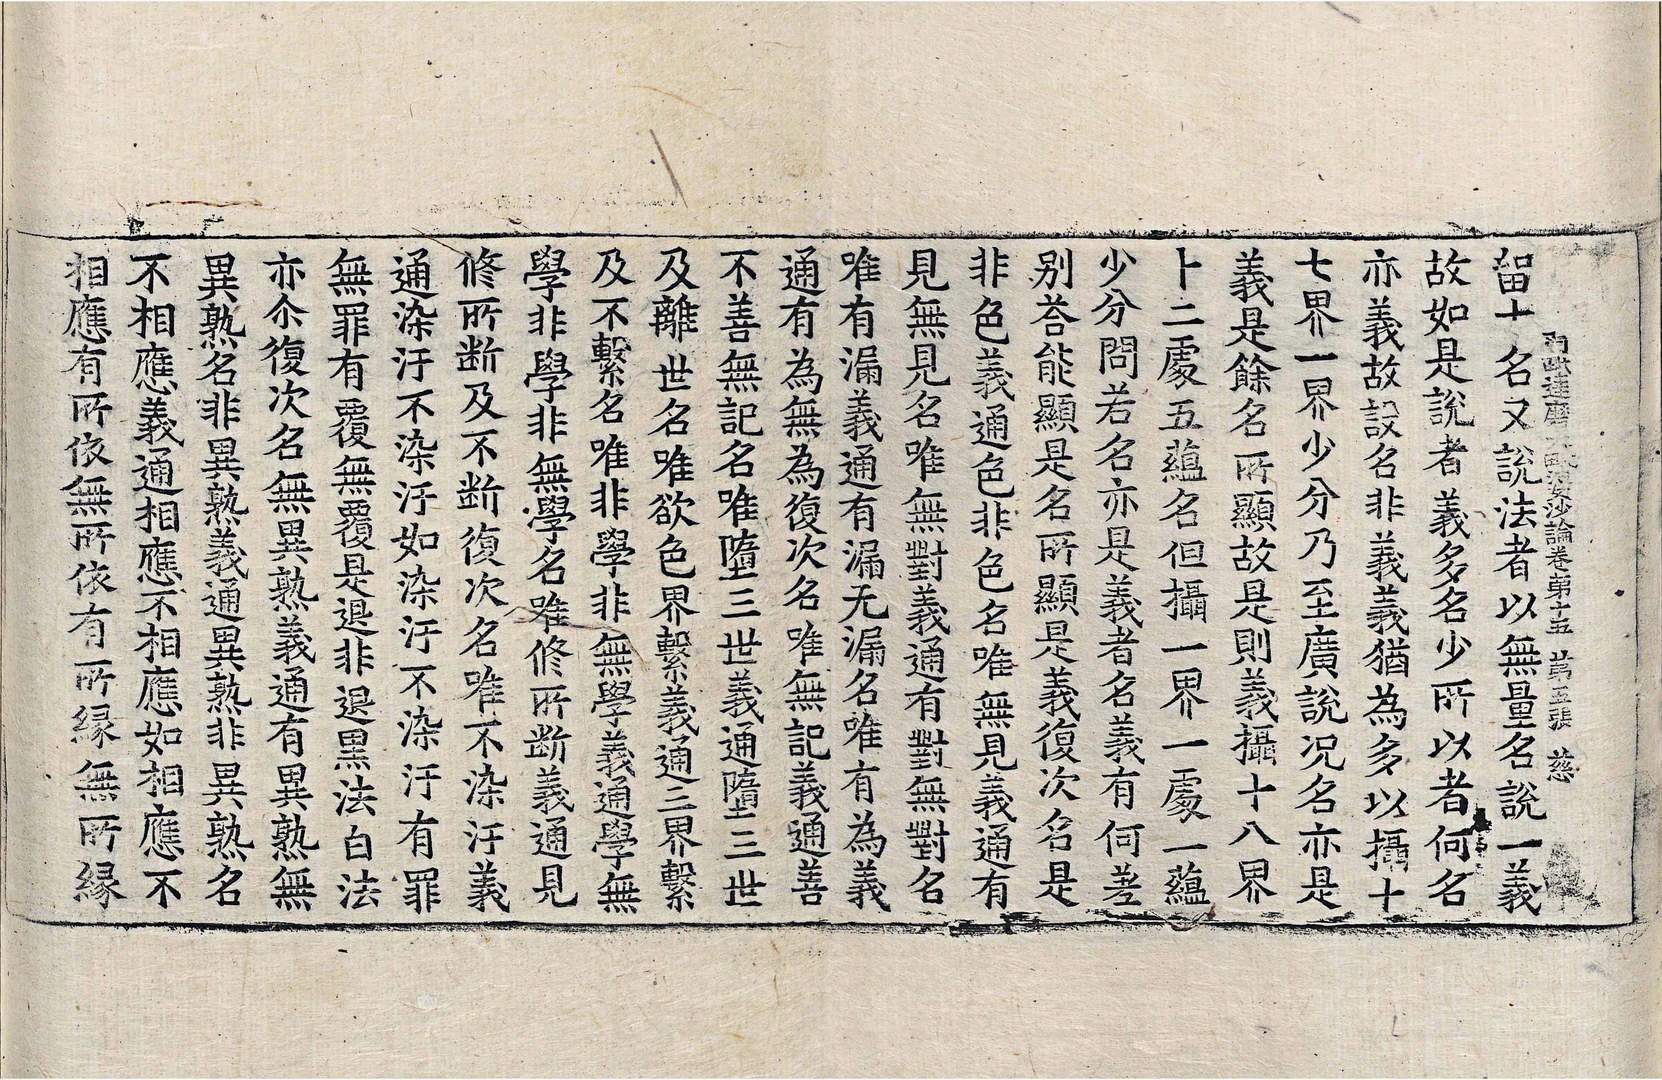 阿毗達磨大毗婆沙論卷第十五 第五張 慈
留十名又說法者以無量名說一義
故如是說者義多名少所以者何名
亦義故設名非義義猶為多以攝十
七界一界少分乃至廣說況名亦是
義是餘名所顯故是則義攝十八界
十二處五蘊名但攝一界一處一蘊
少分問若名亦是義者名義有何差
别荅能顯是名所顯是義復次名是
非色義通色非色名唯無見義通有
見無見名唯無對義通有對無對名
唯有漏義通有漏无漏名唯有為義
通有為無為復次名唯無記義通善
不善無記名唯墮三世義通墮三世
及離世名唯欲色界繫義通三界繫
及不繫名唯非學非無學義通學無
學非學非無學名唯修所断義通見
修所断及不断復次名唯不染汙義
通染汙不染汙如染汙不染汙有罪
無罪有覆無覆是退非退黑法白法
亦尒復次名無異熟義通有異熟無
異熟名非異熟義通異熟非異熟名
不相應義通相應不相應如相應不
相應有所依無所依有所緣無所緣